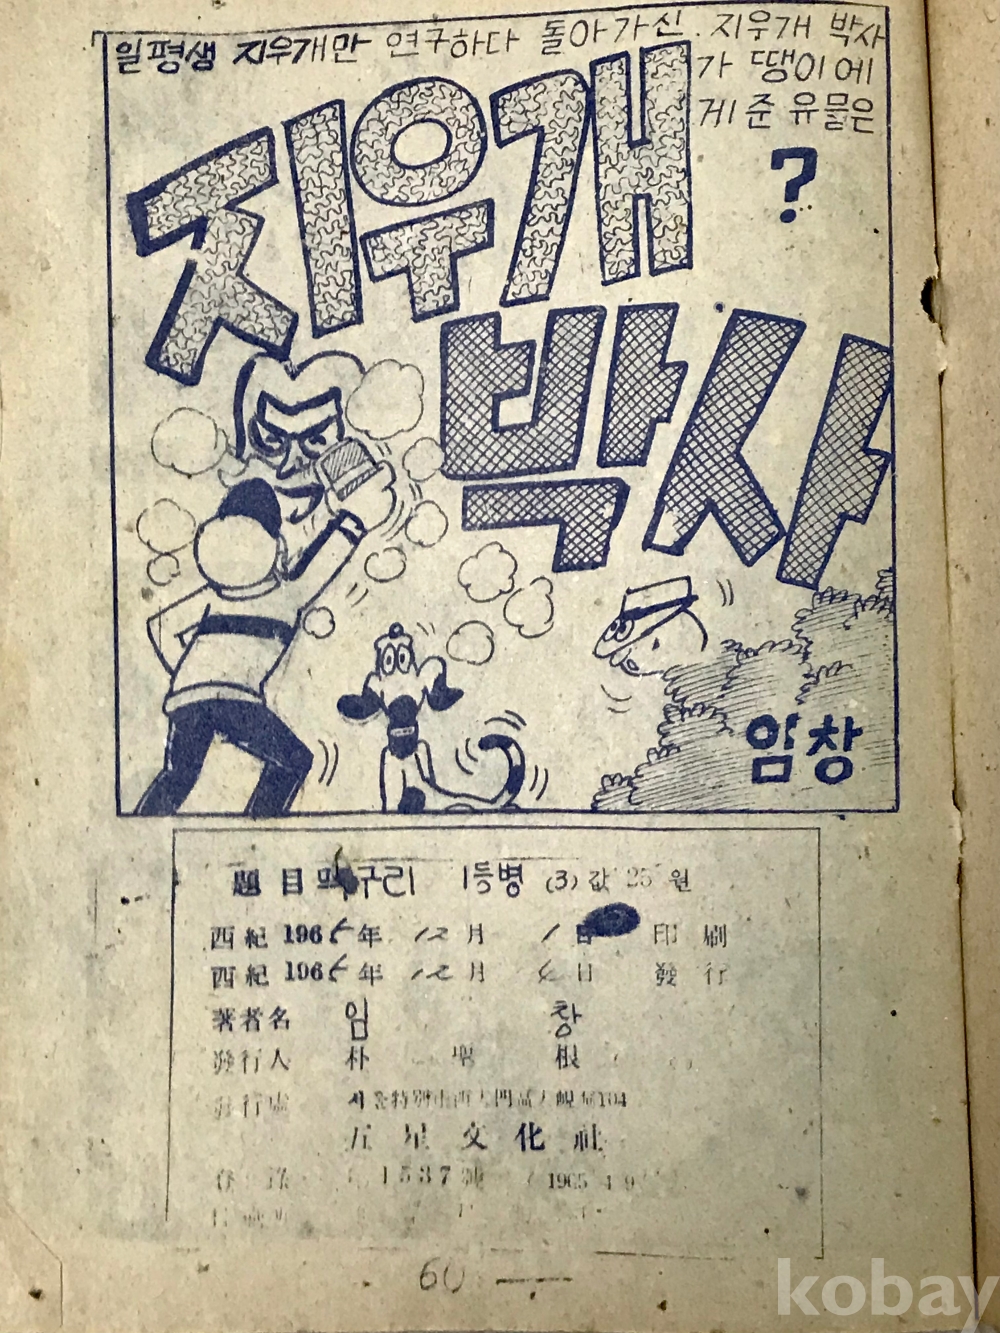 일평생 지우개만 연구하다 돌아가신 지우개 박사
가 땡이에
게 준 유물은
?
지우개
박사
임창
題目 구리 1등병 (3) 값 25 원
西紀 1965年 12月 1日 印刷
西紀 1965年 12月 日 發行
著者名 임 창
發行人 朴 聖 根
서울特別市西大門區大峴洞104
五星文化社
1537 1965 4 9
60
kobay